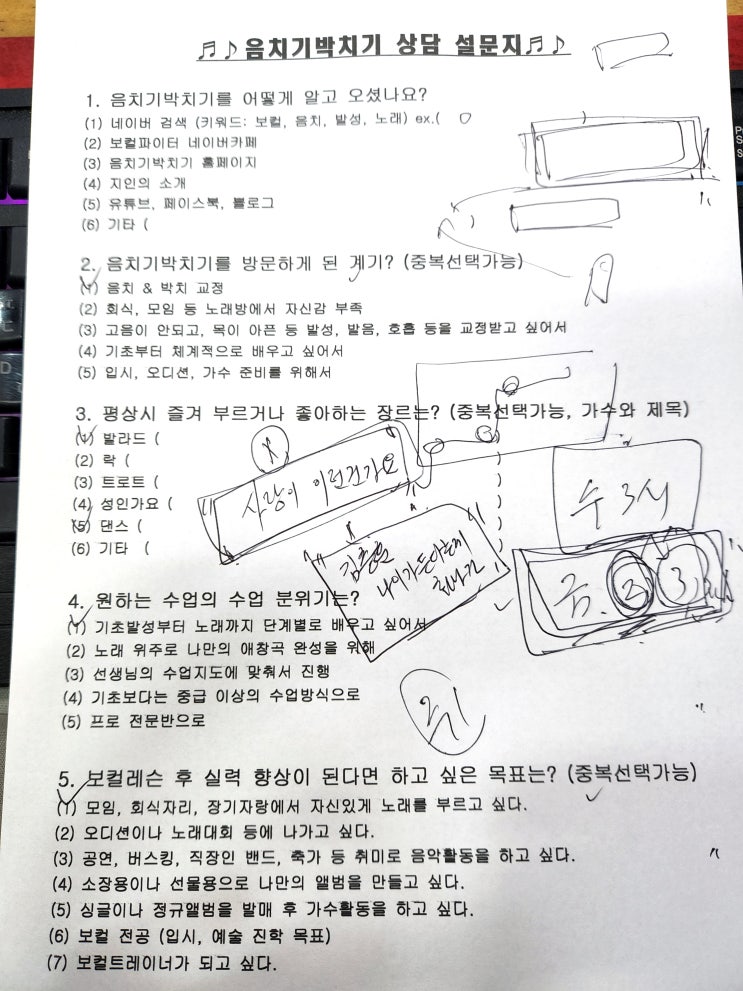 ♬♪음치기박치기 상담 설문지♬♪
1. 음치기박치기를 어떻게 알고 오셨나요?
(1) 네이버 검색 (키워드: 보컬, 음치, 발성, 노래) ex.(
(2) 보컬파이터 네이버카페
(3) 음치기박치기 홈페이지
(4) 지인의 소개
(5) 유튜브, 페이스북, 블로그
(6) 기타 ( )
2. 음치기박치기를 방문하게 된 계기? (중복선택가능)
(1) 음치 & 박치 교정
(2) 회식, 모임 등 노래방에서 자신감 부족
(3) 고음이 안되고, 목이 아픈 등 발성, 발음, 호흡 등을 교정받고 싶어서
(4) 기초부터 체계적으로 배우고 싶어서
(5) 입시, 오디션, 가수 준비를 위해서
3. 평상시 즐겨 부르거나 좋아하는 장르는? (중복선택가능, 가수와 제목)
(1) 발라드 (
(2) 락 (
(3) 트로트 (
(4) 성인가요 (
(5) 댄스 (
(6) 기타 (
사랑이 이런건가요
수 3시
금. 2 3
4. 원하는 수업의 수업 분위기는?
(1) 기초발성부터 노래까지 단계별로 배우고 싶어서
(2) 노래 위주로 나만의 애창곡 완성을 위해
(3) 선생님의 수업지도에 맞춰서 진행
(4) 기초보다는 중급 이상의 수업방식으로
(5) 프로 전문반으로
5. 보컬레슨 후 실력 향상이 된다면 하고 싶은 목표는? (중복선택가능)
(1) 모임, 회식자리, 장기자랑에서 자신있게 노래를 부르고 싶다.
(2) 오디션이나 노래대회 등에 나가고 싶다.
(3) 공연, 버스킹, 직장인 밴드, 축가 등 취미로 음악활동을 하고 싶다.
(4) 소장용이나 선물용으로 나만의 앨범을 만들고 싶다.
(5) 싱글이나 정규앨범을 발매 후 가수활동을 하고 싶다.
(6) 보컬 전공 (입시, 예술 진학 목표)
(7) 보컬트레이너가 되고 싶다.